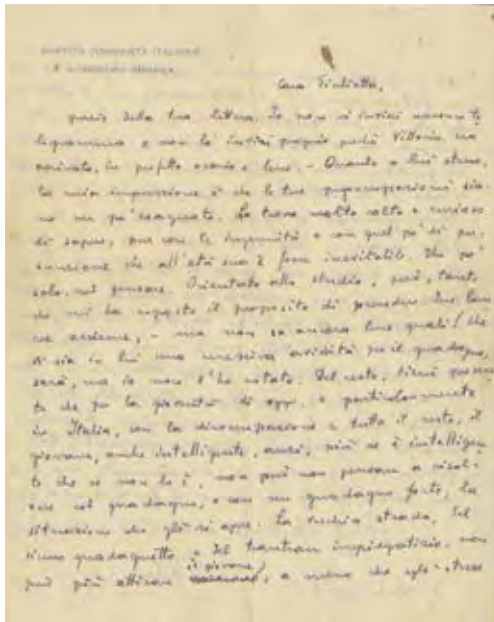 PARTITO COMUNISTA ITALIANO
IL SEGRETARIO GENERALE
Cara Giulietta,
grazie della tua lettera. Io non vi inviai nessun te-
legramma e non lo inviai proprio perché Vittorio era
arrivato, in perfetto orario e bene. - Quanto a lui stesso,
la mia impressione è che le tue preoccupazioni sia-
no un po' esagerate. Lo trovo molto colto e curioso
di sapere, pur con le ingenuità e con quel po' di pre-
sunzione che all'età sua è forse inevitabile. Un po'
solo, nel pensare. Orientato allo studio, però, tanto
che mi ha esposto il proposito di prendere due lau-
ree assieme, - ma non sa ancora bene quali! Che
vi sia in lui una eccessiva avidità per il guadagno,
sarà, ma io non l'ho notato. Del resto, tieni presen-
te che per la gioventù di oggi, e particolarmente
in Italia, con la disoccupazione e tutto il resto, il
giovane, anche intelligente, anzi, più se è intelligen-
te che se non lo è, non può non pensare a risol-
vere col guadagno, e con un guadagno forte, la
situazione che gli si apre. La vecchia strada, del
sicuro guadagnetto e del trantran impiegatizio, non
può più attirare il giovane, a meno che egli stesso